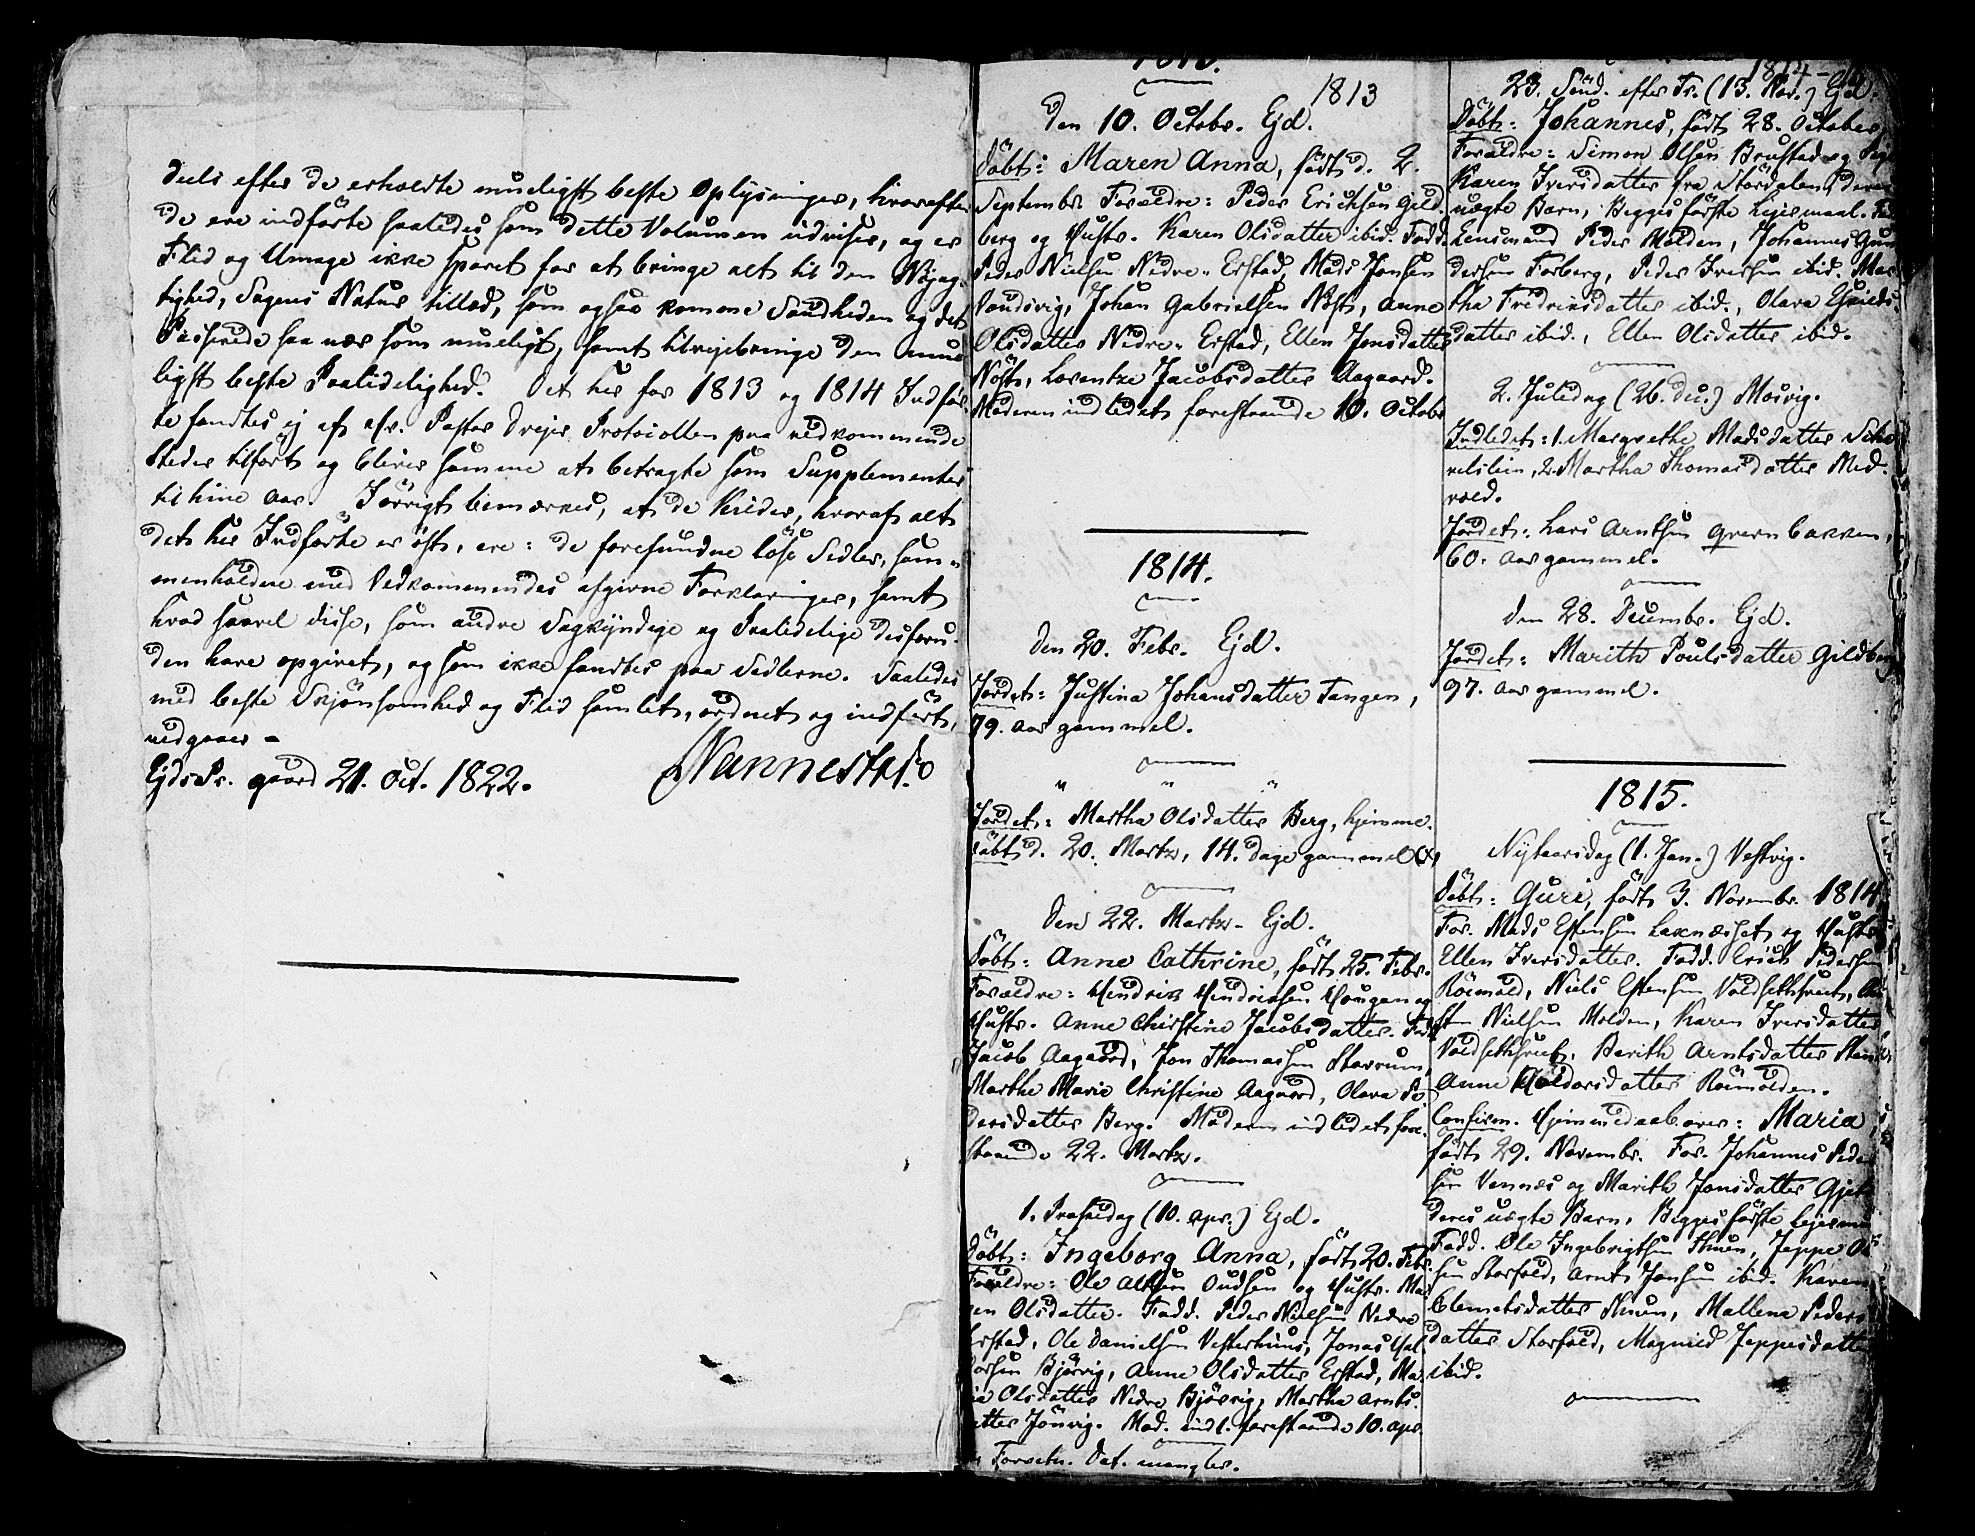 deels efter de erholdte mueligst beste Oplysninger, hvorefter
de ere indførte saaledes som dette Volumen udviser, og er
Flid og Umage ikke sparet for at bringe alt til den Nöjag-
tighed, Sagens Natur tillod, som ogsaa komme Sandheden og det
Passerede saa nær som mueligt, samt tilvejebringe den mue-
ligst beste Paalidelighed. Det her for 1813 og 1814 Indför-
te fandtes ej af Hr. Pastor Drejer Protocollen paa vedkommende
Steder tilfört og bliver samme at betragte som Supplementer
til hine Aar. Jövrigt bemærkes, at de Kilder, hvoraf alt
det her Indförte er öst, ere: de forefundne löse Sedler, sam-
menholdene med Vedkommendes afgivne Forklaringer, samt
hvad saavel disse, som andre Sagkyndige og Paalidelige desforu-
den have opgivet, og som ikke fandtes paa Sedlerne. Saaledes
med beste Skjönsomhed og Flid samlet, ordnet og indfört,
vedgaaer -
Ejds Pr. gaard 21. Oct. 1822. Nannestad
1813.
1813
Den 10. Octobr. Ejd.
Döbt: Maren Anna, födt d. 2.
Septembr. Forældre: Peder Ericksen Gild-
berg og Hustr. Karen Olsdatter ibid. Fadd.
Peder Nielsen Nedre-Erstad, Mads Jonsen
Sandsvig, Johan Gabrielsen Nöst, Anne
Olsdatter Nedre-Erstad, Ellen Jonsdatter
Nöst, Lorentze Jacobsdatter Aagaard.
Moderen indledet forestaaende 10. Octobr
1814.
Den 20. Febr. Ejd.
Jordet: Justina Johansdatter Tangen,
79. Aar gammel.
" " "
Jordet: Martha Olsdatter Berg, hjemme-
döbt d. 20. Martz, 14. Dage gammel
Den 22. Martz. Ejd.
Döbt: Anne Cathrine, födt 25. Febr.
Forældre: Hendrik Hendricksen Hougan og
Hustr. Anne Christine Jacobsdatter. Fadd.
Jacob Aagaard, Jon Thomassen Stavrum,
Marthe Marie Christine Aagaard, Olava Pe-
dersdatter Berg. Moderen indledet fore-
staaende 22. Martz.
1. Paaskedag (10. Apr.) Ejd.
Döbt: Ingeborg Anna, födt 20. Febr.
Forældre: Ole Olsen Oudsen og Hustr. Ma-
ren Olsdatter. Fadd. Peder Nielsen Nedre
Erstad, Ole Danielsen Vesterhuus, Jonas Hal-
dorsen Björvig, Anne Olsdatter Erstad, Ma-
ria Olsdatter Nedre Björvig, Martha Arnts-
datter Jönvig. Mod. indl. forestaaende 10. Apr.
Forretn. Dat. mangler.
1814-15
23. Sönd. efter Tr. (13. Nov.) Ejd.
Döbt: Johannes, födt 28. October,
Forældre: Simon Olsen Brustad og Pige
Karen Iversdatter fra Stördalen, deres
uægte Barn, Begges förste Lejermaal. Fad.
Lensmand Peder Molden, Johannes Gun-
dersen Forberg, Peder Iversen ibid. Mar-
tha Fredriksdatter ibid., Olava Eskilds-
datter ibid., Ellen Olsdatter ibid.
2. Juledag (26. Dec.) Mosvig.
Indledet: 1. Margrethe Madsdatter Scha-
velslein, 2. Martha Thomasdatter Ned-
vold.
Jordet: Lars Arntsen Qvernbakken,
60. Aar gammel.
Den 28. Decembr. Ejd.
Jordet: Marith Poulsdatter Gildberg
97. Aar gammel.
1815.
Nytaarsdag (1. Jan.) Vestvig.
Döbt: Guri, födt 3. Novembr. 1814
For. Mads Estensen Laxnæsset og Hustr
Ellen Iversdatter. Fadd. Erich Pedersen
Römold, Niels Estensen Voldsethsveet,
Nielsen Molden, Karen Iversdatter
Voldsethsveet, Berith Arntsdatter
Anne Haldorsdatter Römolden.
Confirm. Hjemmedaab over: Maria,
födt 29. Novembr. For. Johannes Peder-
sen Vennes og Marith Jonsdatter
deres uægte Barn, Begges förste Lejerma
Fadd. Ole Ingebrigtsen Thuen, Jeppe Ol-
sen Storfold, Arnt Jonsen ibid. Karen
Clemetsdatter Nuen, Mallena Peders-
datter Storfold, Magnild Jeppesdatter
ibid.